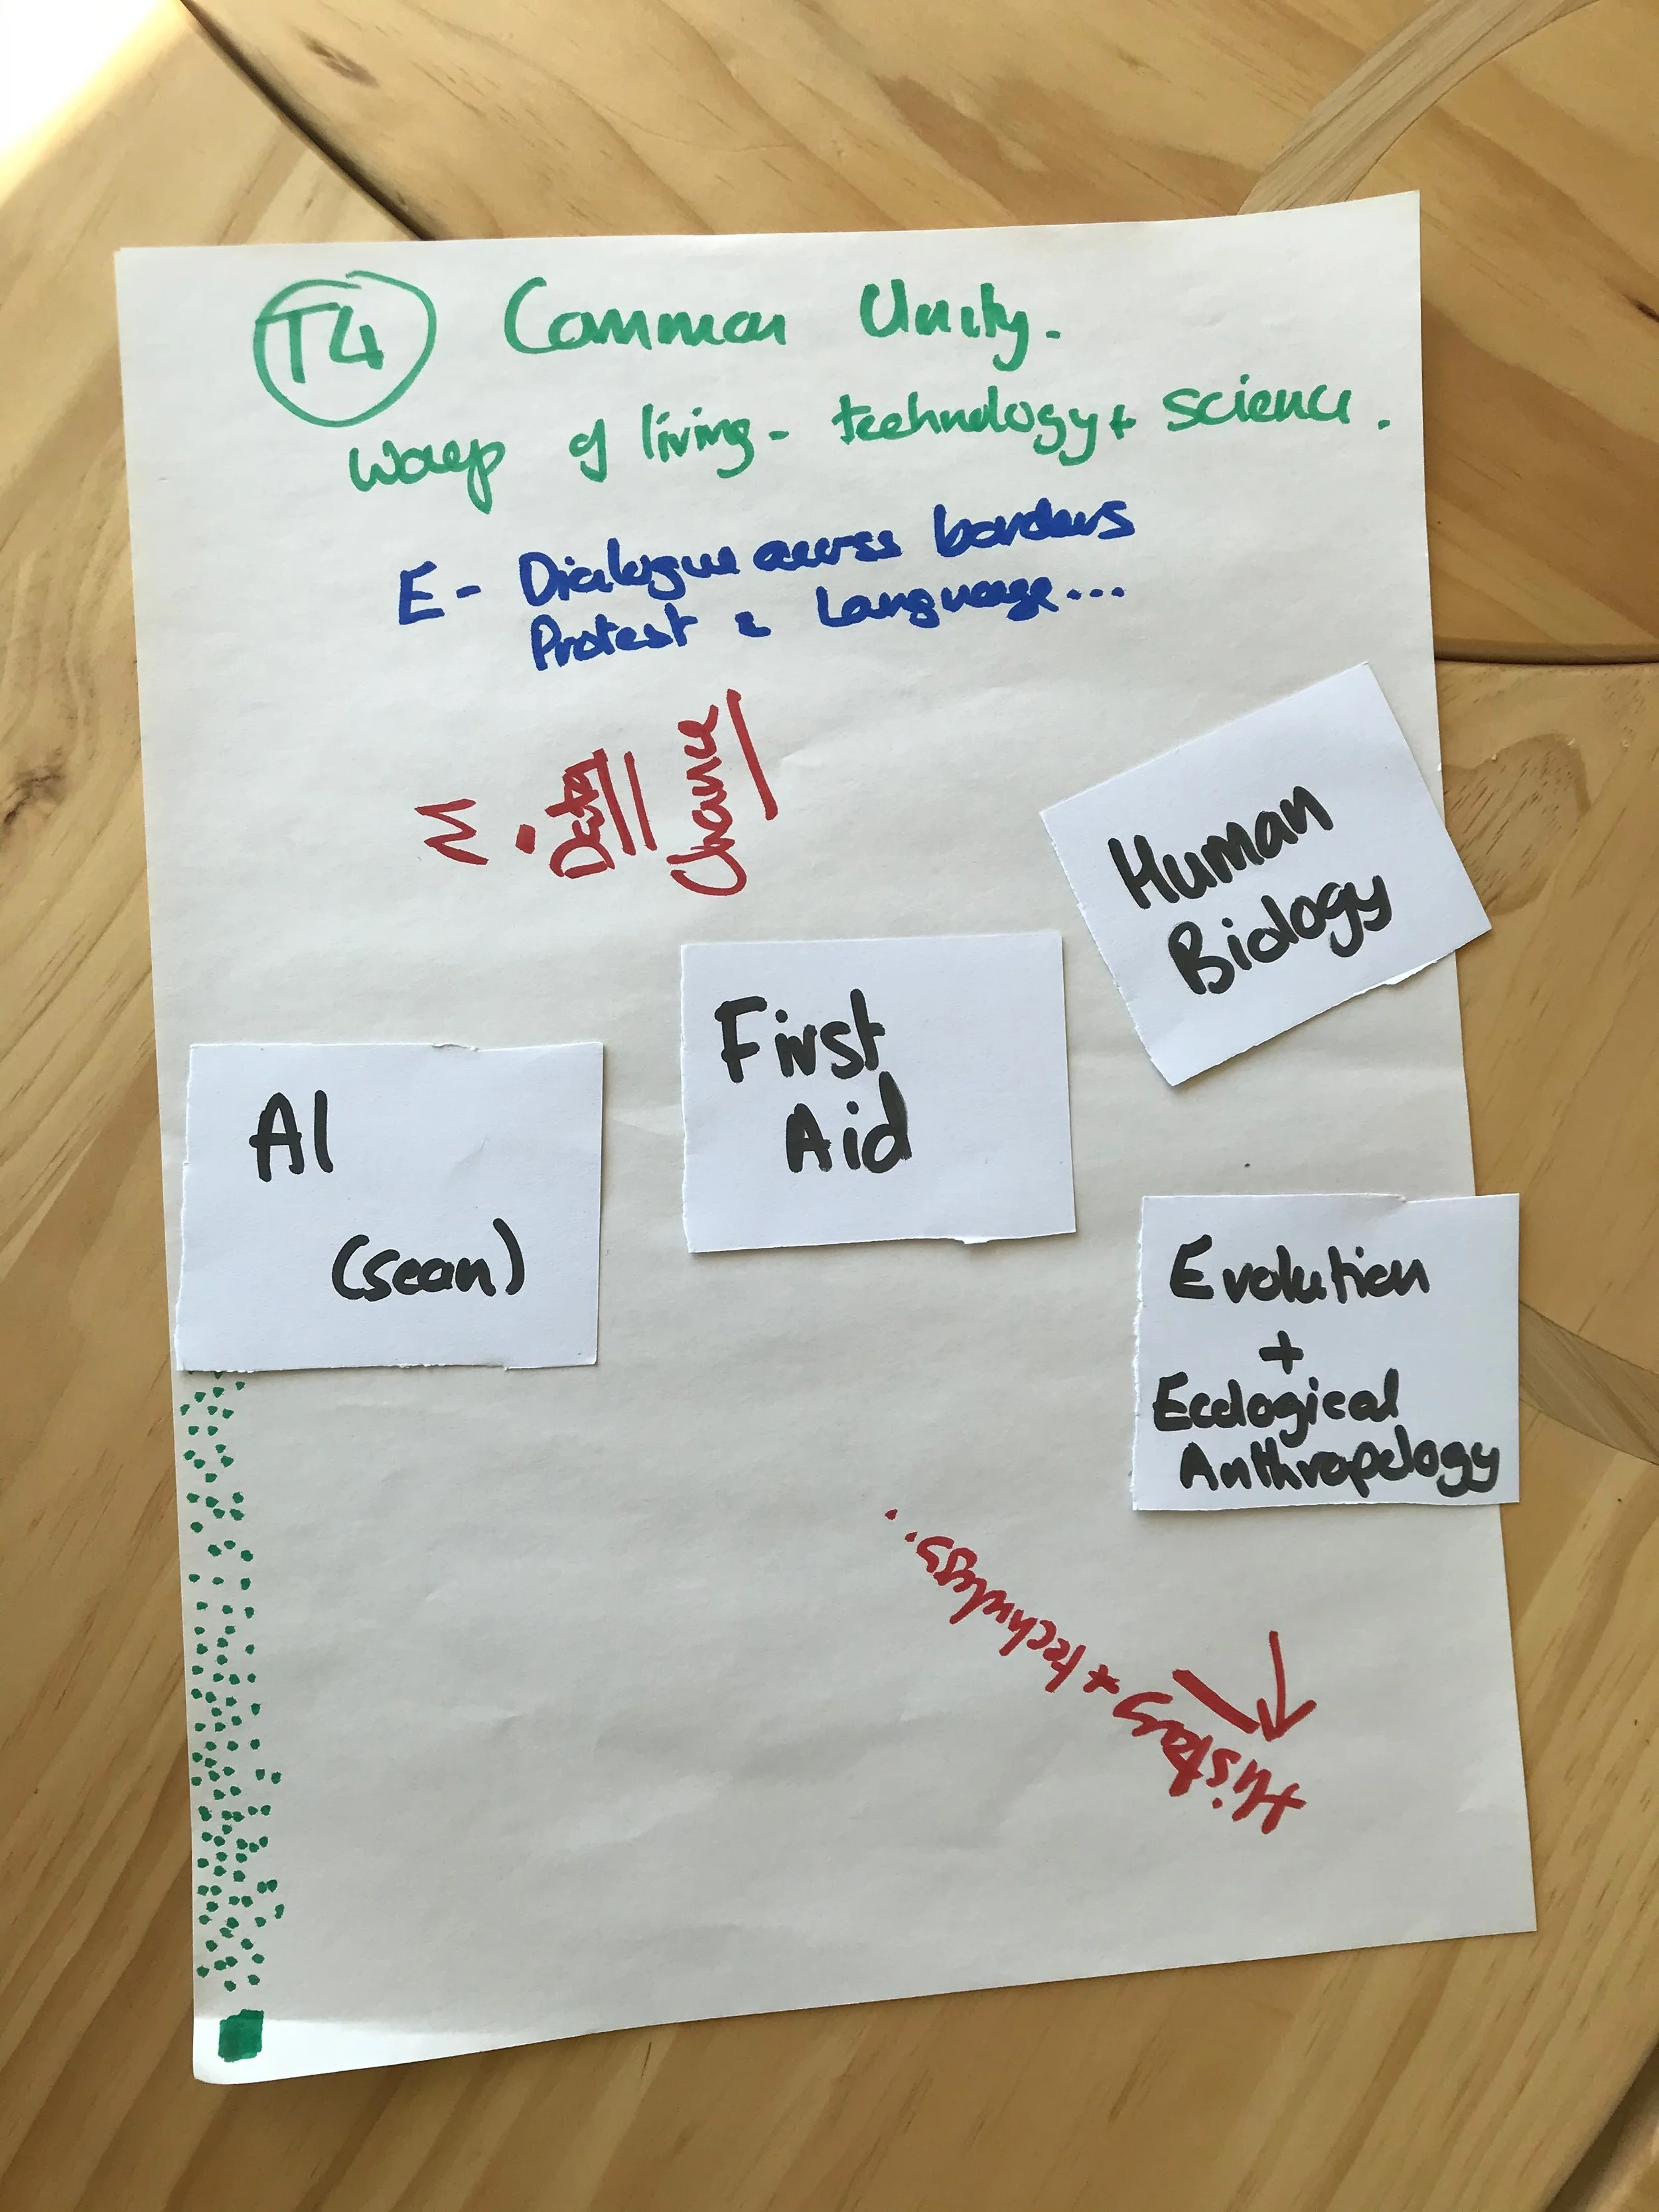 T4 Common Unity.
Ways of living - technology + science.
E - Dialogue across borders
Protest & Language...
M
. Data
Chance
Human
Biology
First
Aid
AI
(sean)
Evolution
+
Ecological
Anthropology
History + technology...